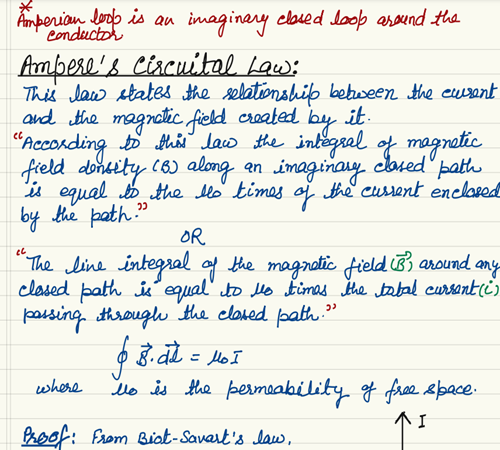 *
Amperian loop is an imaginary closed loop around the
conductor
Ampere's Circuital Law:
This law states the relationship between the current
and the magnetic field created by it.
"According to this law the integral of magnetic
field density (B) along an imaginary closed path
is equal to the μo times of the current enclosed
by the path."
OR
"The line integral of the magnetic field (B⃗) around any
closed path is equal to μo times the total current (i)
passing through the closed path."
∮ B⃗. d⃗l = μoI
where μo is the permeability of free space.
I
Proof: From Biot-Savart's law,